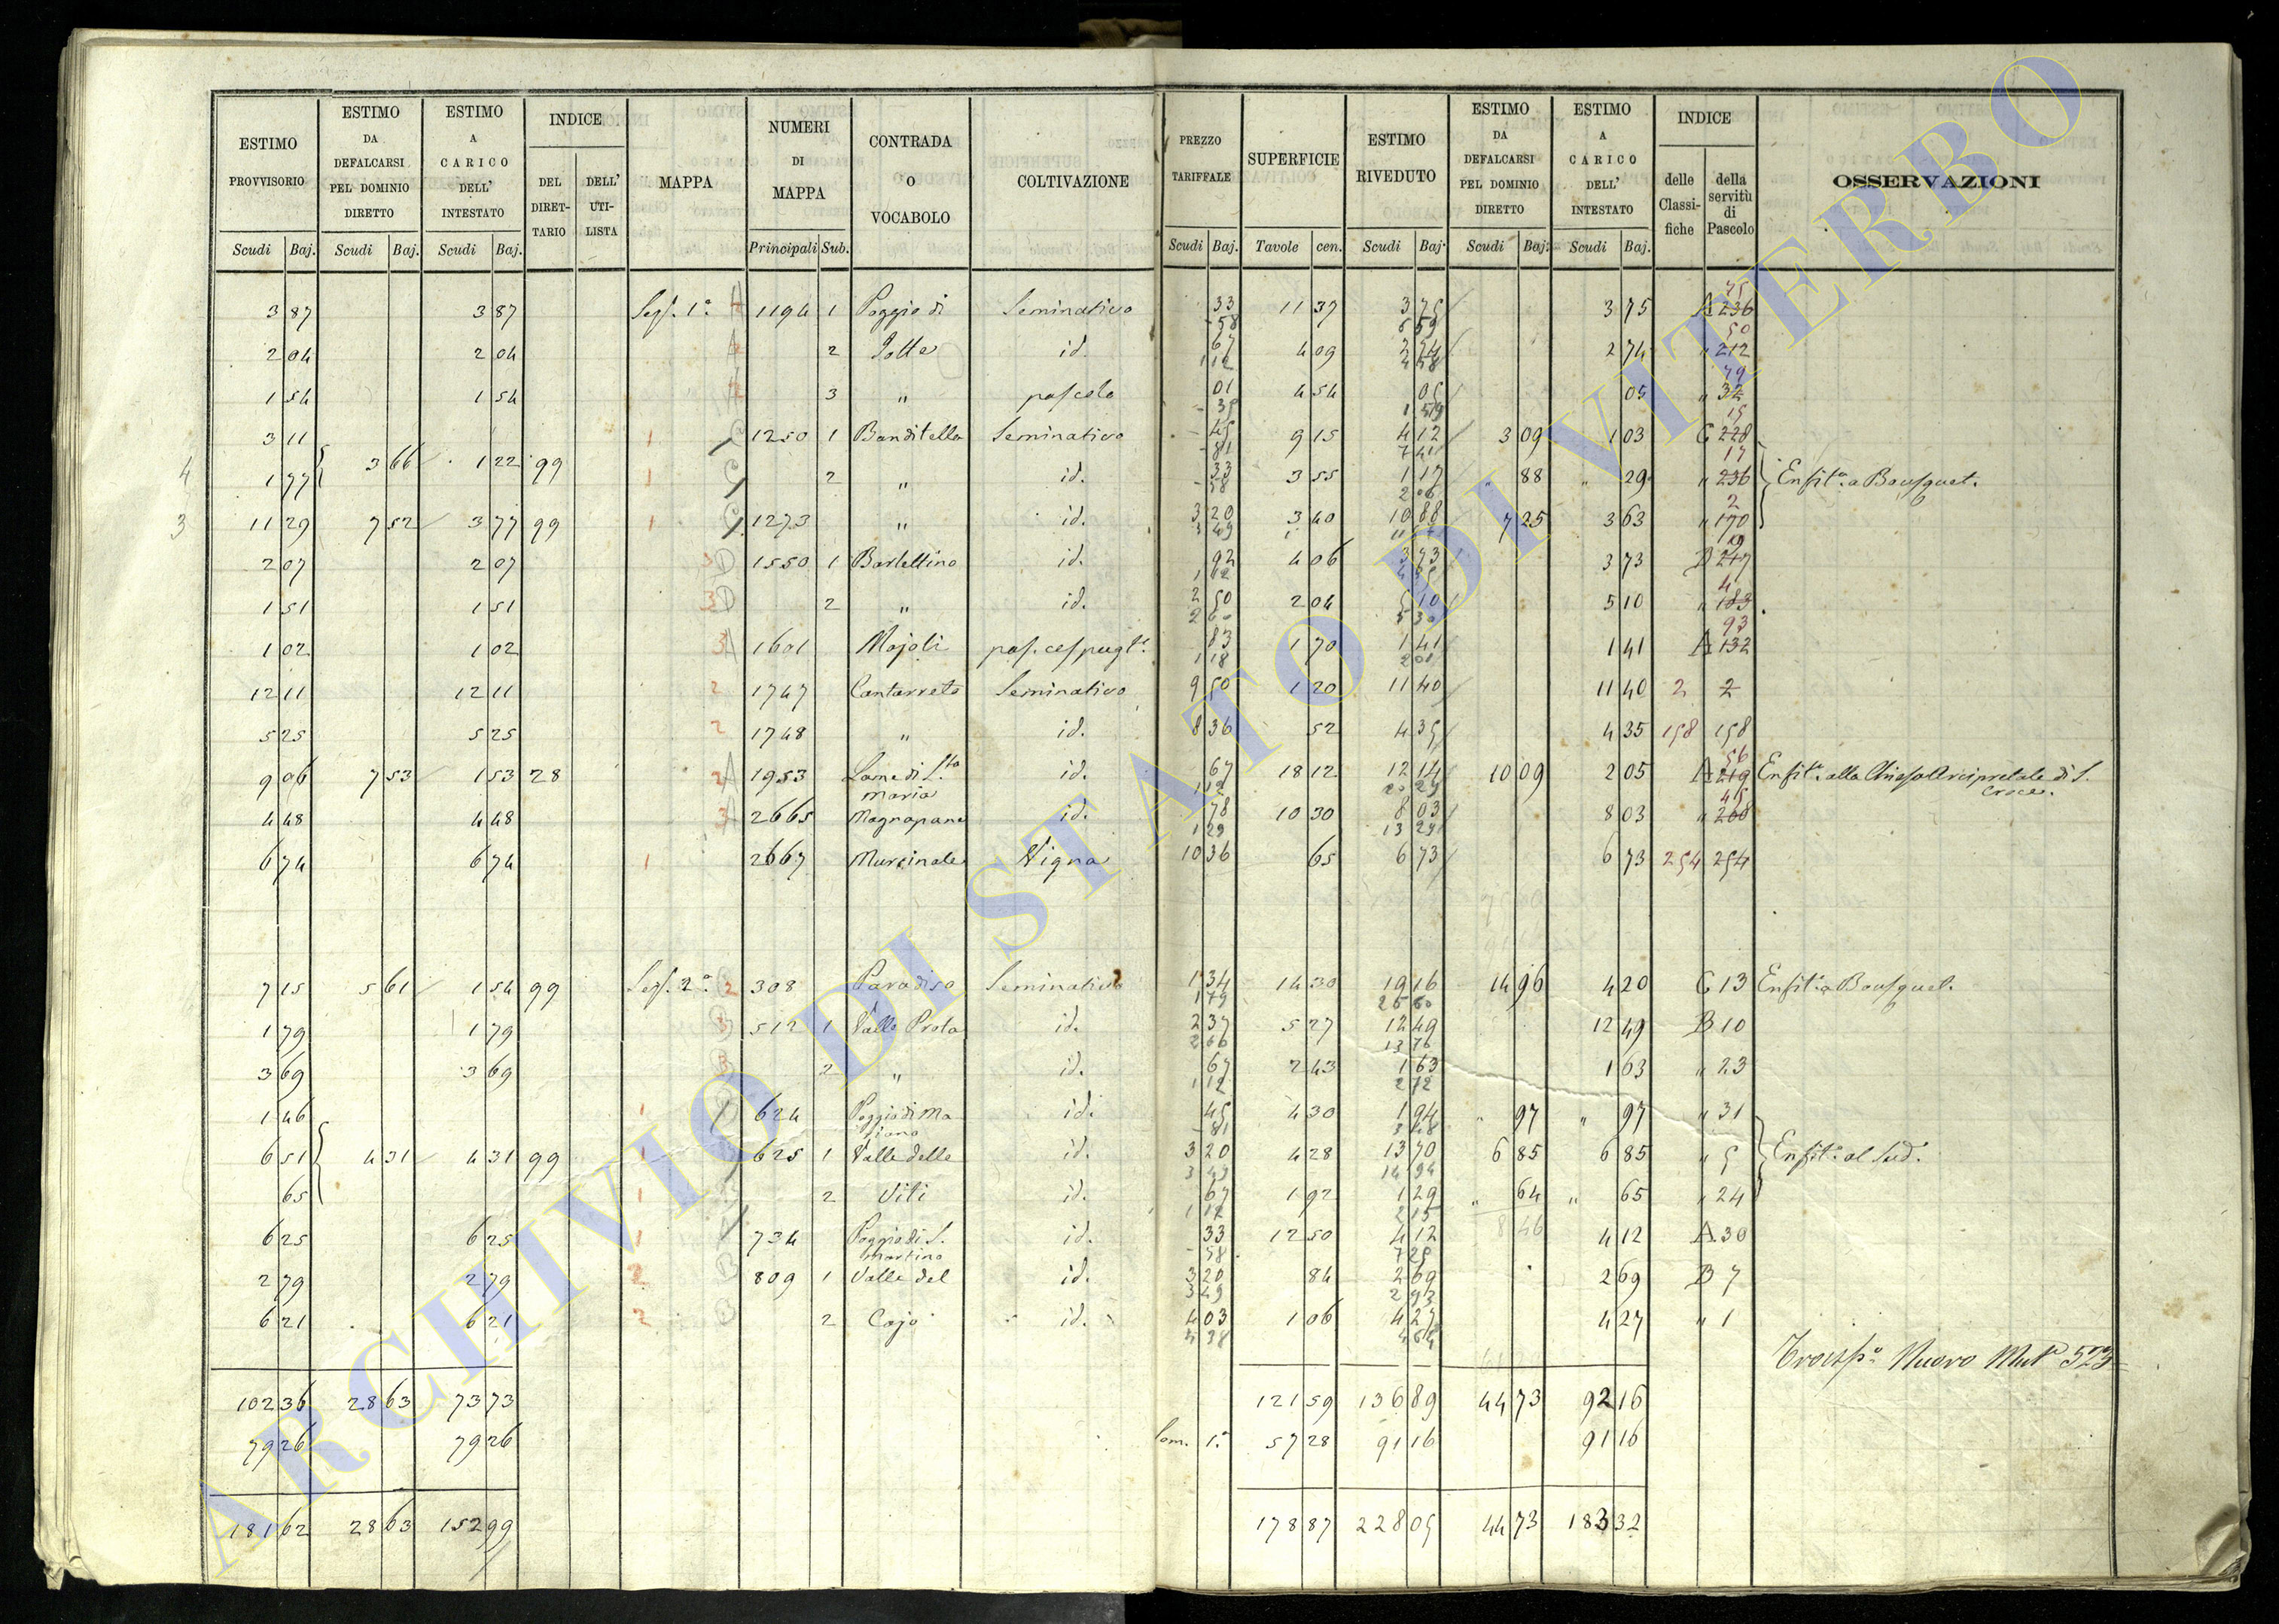 ESTIMO PROVVISORIO | ESTIMO DA DEFALCARSI PEL DOMINIO DIRETTO | ESTIMO A CARICO DELL' INTESTATO | INDICE | MAPPA | NUMERI DI MAPPA | CONTRADA O VOCABOLO | COLTIVAZIONE | PREZZO TARIFFALE | SUPERFICIE | ESTIMO RIVEDUTO | ESTIMO DA DEFALCARSI PEL DOMINIO DIRETTO | ESTIMO A CARICO DELL' INTESTATO | INDICE | OSSERVAZIONI
DEL DIRET-TARIO | DELL' UTI-LISTA | delle Classi-fiche | della servitù di Pascolo
Scudi Baj. | Scudi Baj. | Scudi Baj. | Principali Sub. | Scudi Baj. | Tavole cen. | Scudi Baj. | Scudi Baj. | Scudi Baj.
3 87 | 3 87 | Sez. 1a A | 1194 | 1 | Poggio di | Seminativo | 33 | 11 37 | 3 75 | 3 75 | A 236 75
58 | 6 59
2 04 | 2 04 | 2 | Jolle | id. | 67 | 4 09 | 2 74 | 2 74 | " 212 50
1 12 | 4 58
1 54 | 1 54 | 3 | " | pascolo | 01 | 4 54 | 05 | 05 | " 32 79
35 | 1 59
3 11 | 1 | 1250 | 1 | Banditella | Seminativo | 45 | 9 15 | 4 12 | 3 09 | 1 03 | C 228 15
81 | 7 41
4 | 1 77 | 3 66 | 1 22 | 99 | 1 C | 2 | " | id. | 33 | 3 55 | 1 17 | " 88 | " 29 | " 236 17 | Enfita. a Bousquet.
58 | 2 06
3 | 11 29 | 7 52 | 3 77 | 99 | 1 C | 1273 | " | id. | 3 20 | 3 40 | 10 88 | 7 25 | 3 63 | " 170 2
3 49
2 07 | 2 07 | 3 D | 1550 | 1 | Bartellino | id. | 92 | 4 06 | 3 73 | 3 73 | B 217
1 51 | 1 51 | 3 D | 2 | " | id. | 2 50 | 2 04 | 5 10 | 5 10 | " 183 4
2 60 | 5 30
1 02 | 1 02 | 3 A | 1601 | Majoli | pas. cespugto. | 83 | 1 70 | 1 41 | 1 41 | A 132 93
1 18 | 2 01
12 11 | 12 11 | 2 | 1747 | Cantarreto | Seminativo | 9 50 | 1 20 | 11 40 | 11 40 | 2 | 2
5 25 | 5 25 | 2 | 1748 | " | id. | 8 36 | 52 | 4 35 | 4 35 | 158 | 158
9 06 | 7 53 | 1 53 | 28 | 2 A | 1953 | Lame di Sta | id. | 67 | 18 12 | 12 14 | 10 09 | 2 05 | A 219 56 | Enfita. alla Chiesa Arcipretale di S.
Maria | 1 12 | 20 29 | Croce.
4 48 | 4 48 | 3 A | 2665 | Magnapane | id. | 78 | 10 30 | 8 03 | 8 03 | " 208 45
1 29 | 13 29
6 74 | 6 74 | 1 | 2667 | Murcinale | Vigna | 10 36 | 65 | 6 73 | 6 73 | 254 | 254
7 15 | 5 61 | 1 54 | 99 | Sez. 2a C 2 | 308 | Paradiso | Seminativo | 1 34 | 14 30 | 19 16 | 14 96 | 4 20 | C 13 | Enfita. a Bousquet.
1 79 | 25 60
1 79 | 1 79 | B | 512 | 1 | Valle Prota | id. | 2 37 | 5 27 | 12 49 | 12 49 | B 10
2 60 | 13 76
3 69 | 3 69 | B | 2 | " | id. | 67 | 2 43 | 1 63 | 1 63 | " 23
1 12 | 2 72
1 46 | 1 | 624 | Poggio di Ma | id. | 45 | 4 30 | 1 94 | 97 | " 97 | " 31
81 | 3 48
6 51 | 4 31 | 4 31 | 99 | 1 | 625 | 1 | Valle delle | id. | 3 20 | 4 28 | 13 70 | 6 85 | 6 85 | " 5 | Enfita. al Sud.
3 49 | 14 94
65 | 1 | 2 | Viti | id. | 67 | 1 92 | 1 29 | " 64 | " 65 | " 24
1 12 | 2 15
6 25 | 6 25 | 1 A | 734 | Poggio di S. | id. | 33 | 12 50 | 4 12 | 8 46 | 4 12 | A 30
Martino | 58 | 7 25
2 79 | 2 79 | 2 B | 809 | 1 | Valle del | id. | 3 20 | 84 | 2 69 | 2 69 | B 7
3 49 | 2 93
6 21 | 6 21 | 2 B | 2 | Cajo | id. | 4 03 | 1 06 | 4 27 | 4 27 | " 1
4 38 | 4 64
Nuovo 523
102 36 | 28 63 | 73 73 | 121 59 | 136 89 | 44 73 | 92 16
79 26 | 79 26 | Som. 1a | 57 28 | 91 16 | 91 16
181 62 | 28 63 | 152 99 | 178 87 | 228 05 | 44 73 | 183 32
ARCHIVIO DI STATO DI VITERBO